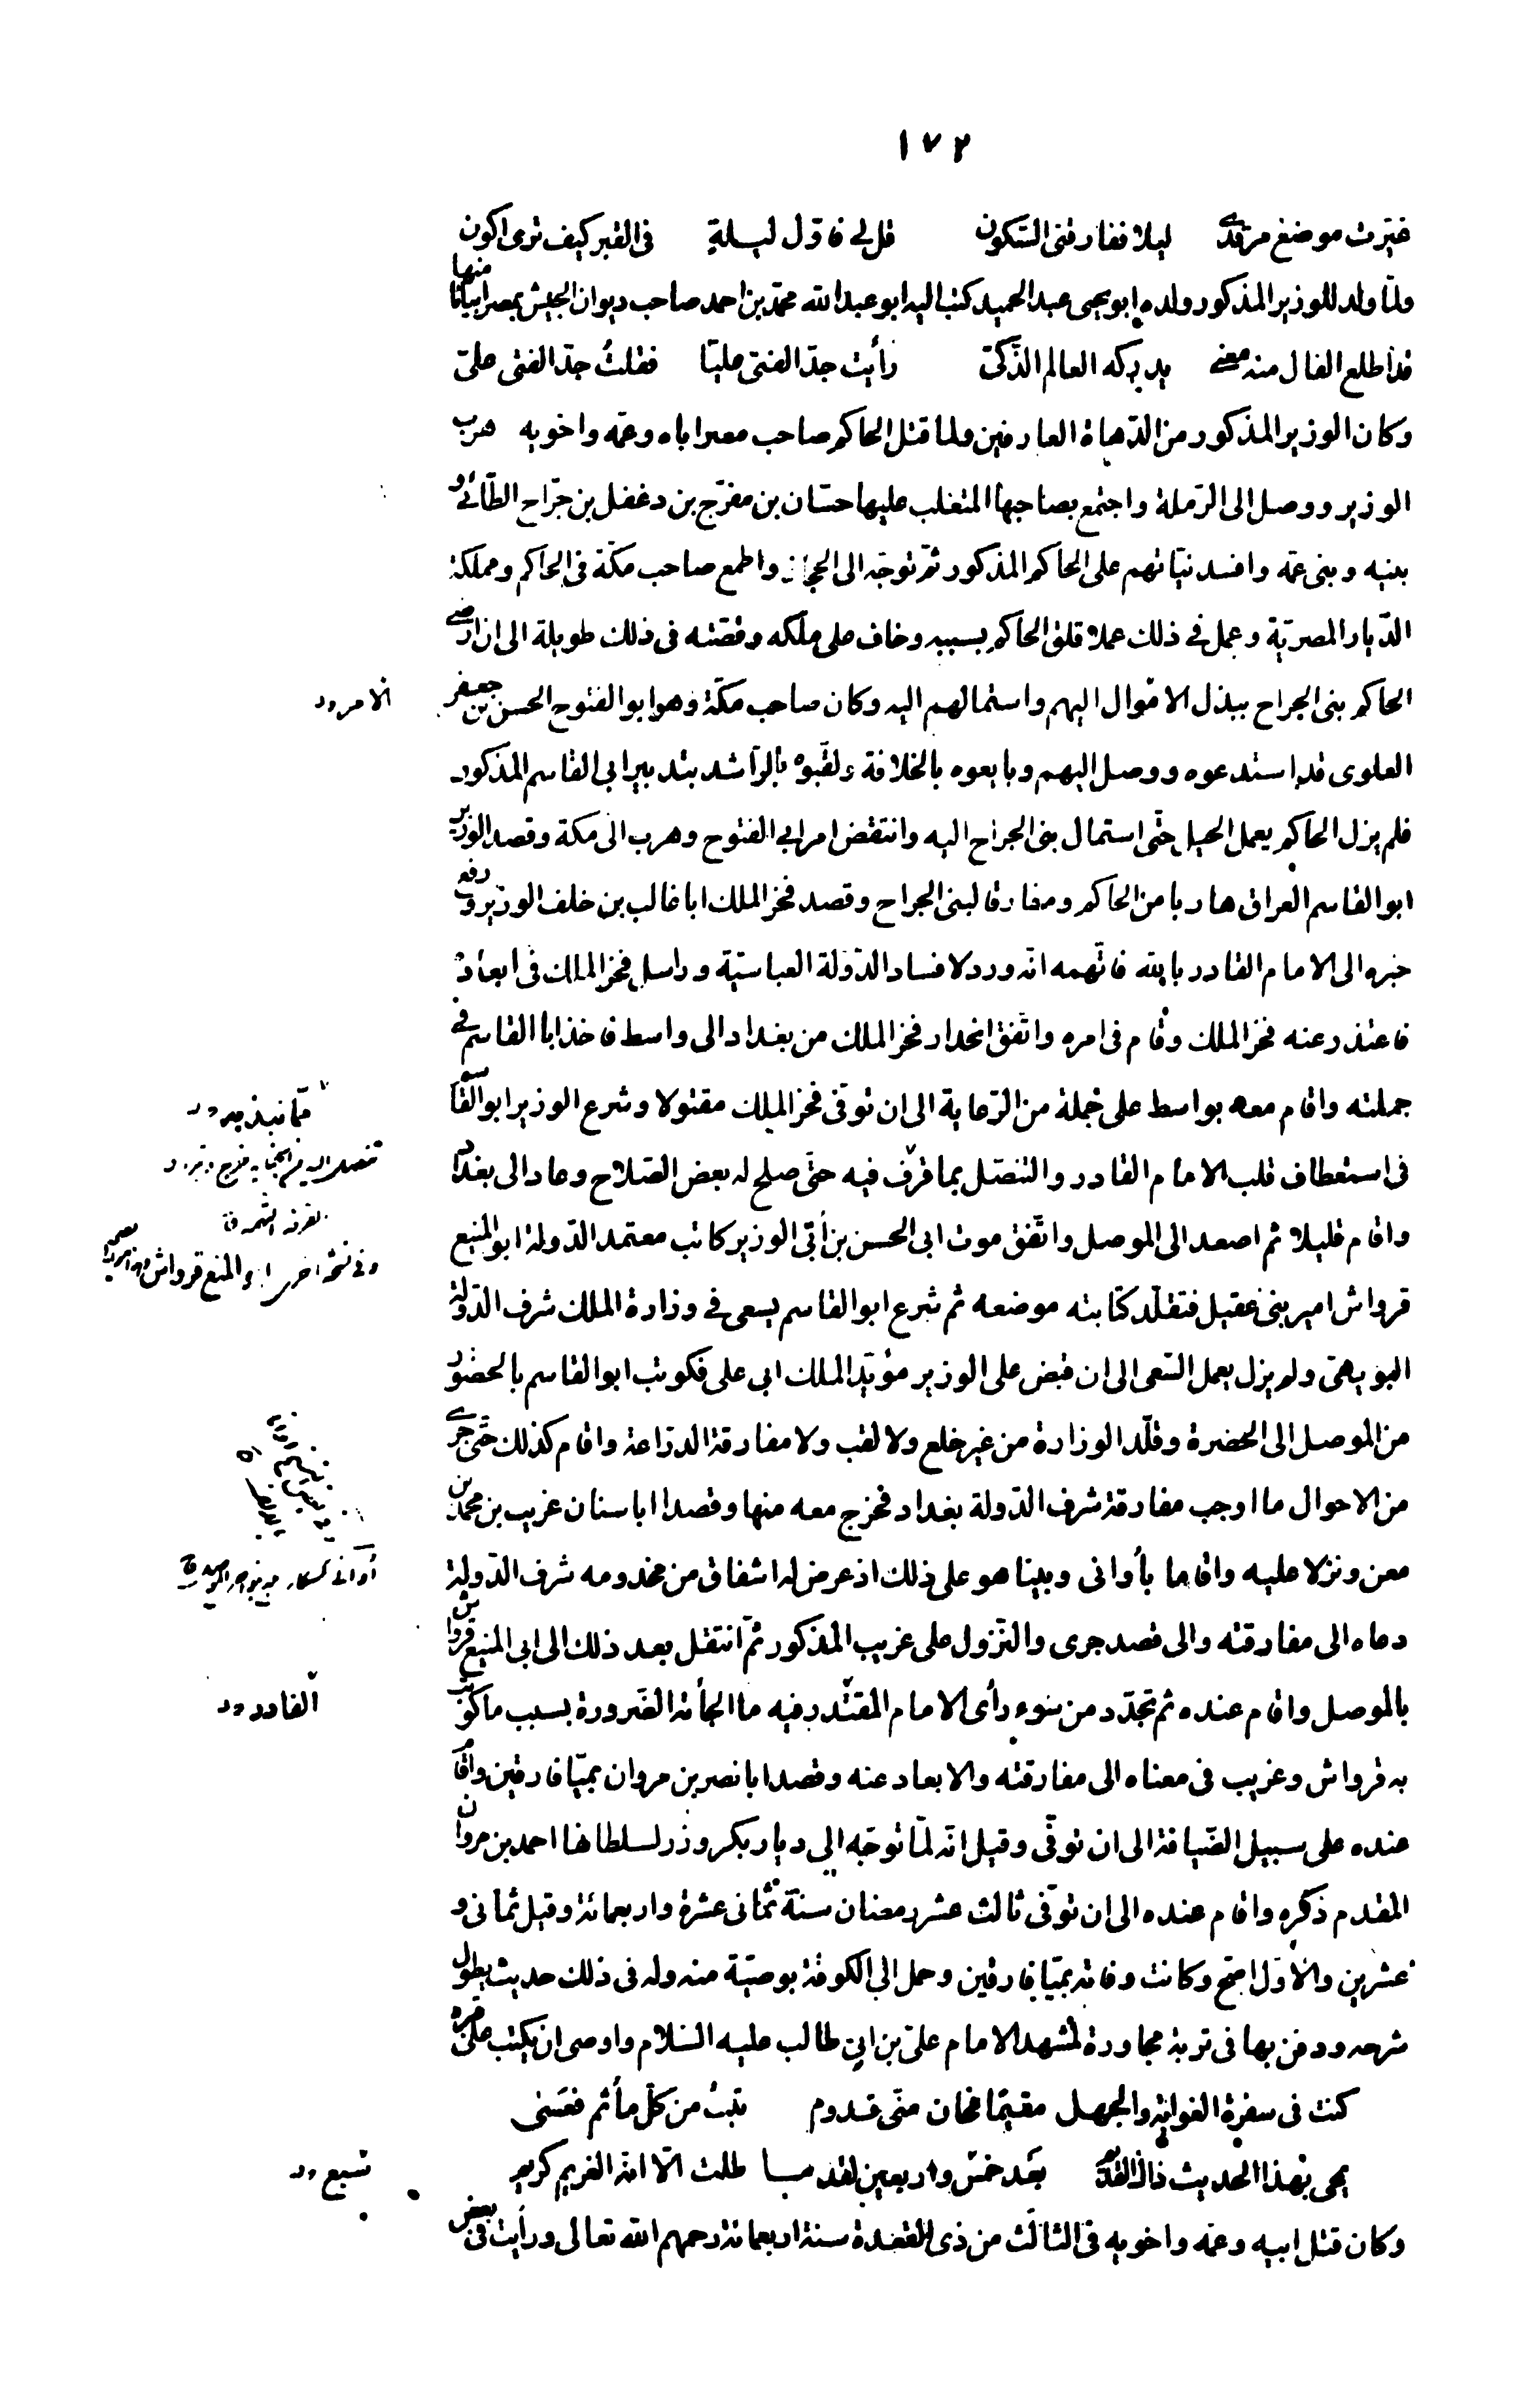 ١٧٢
غيرت موضع مرقدى ليلا ففارقنى السكون قل لى فاوّل ليلة فى القبر كيف ترى اكون
ولمّا ولد للوزير المذكور ولده ابو يحيى عبد الحميد كتب اليه ابو عبد الله محمّد بن احمد صاحب ديوان الجيش بمصر ابياتا منها
قد أطلع الفال منه معنى يدركه العالم الذّكىّ رأيت جدّ الفتى عليّا فقلتُ جدّ الفتى علىّ
وكان الوزير المذكور من الدّهاة العارفين ولما قتل الحاكم صاحب مصر اباه وعمّه واخويه هرب
الوزير ووصل الى الرّملة واجتمع بصاحبها المتغلب عليها حسّان بن مفرّج بن دغفل بن جرّاح الطّائى و
بنيه وبنى عمّه وافسد نيّاتهم على الحاكم المذكور ثمّ توجّه الى الحجاز واطمع صاحب مكّة فى الحاكم ومملكة
الدّيار المصريّة وعمل فى ذلك عملا قلق الحاكم بسببه وخاف على ملكه وقصّته فى ذلك طويلة الى ان ارضى
الحاكم بنى الجراح ببذل الاموال اليهم واستمالهم اليه وكان صاحب مكّة وهو ابو الفتوح الحسن بن جعفر
العلوى قد استدعوه ووصل اليهم وبايعوه بالخلافة ولقّبوه بالرّاشد بتدبير ابى القاسم المذكور
فلم يزل الحاكم يعمل الحيل حتّى استمال بنى الجراح اليه وانتقض امر ابى الفتوح وهرب الى مكة وقصد الوزير
ابو القاسم العراق هاربا من الحاكم ومفارقا لبنى الجراح وقصد فخر الملك ابا غالب بن خلف الوزير ورفع
خبره الى الامام القادر بالله فاتّهمه انّه ورد لافساد الدّولة العباسيّة وراسل فخر الملك فى ابعاده
فاعتذر عنه فخر الملك وقام فى امره واتّفق انحدار فخر الملك من بغداد الى واسط فاخذ ابا القاسم فى
جملته واقام معه بواسط على جملة من الرّعاية الى ان توفّى فخر الملك مقتولا وشرع الوزير ابو القاسم
فى استعطاف قلب الامام القادر والتنصّل بما قرّف فيه حتّى صلح له بعض الصّلاح وعاد الى بغداد
واقام قليلا ثم اصعد الى الموصل واتّفق موت ابى الحسن بن أبى الوزير كاتب معتمد الدّولة ابو المنيع
قرواش امير بنى عقيل فتقلّد كتابته موضعه ثم شرع ابو القاسم يسعى فى وزارة الملك شرف الدّولة
البويهىّ ولم يزل يعمل السّعى الى ان قبض على الوزير مؤيّد الملك ابى على فكوتب ابو القاسم بالحضور
من الموصل الى الحضرة وقلّد الوزارة من غير خلع ولا لقب ولا مفارقة الدرّاعة واقام كذلك حتّى جرى
من الاحوال ما اوجب مفارقة شرف الدّولة بغداد فخرج معه منها وقصدا ابا سنان غريب بن محمّد بن
معن ونزلا عليه واقاما بأوانى وبينا هو على ذلك اذ عرض له اشفاق من مخدومه شرف الدّولة
دعاه الى مفارقته والى قصد جرى والنّزول على غريب المذكور ثمّ انتقل بعد ذلك الى ابى المنيع قرواش
بالموصل واقام عنده ثم تجدّد من سوء رأى الامام المقتدر فيه ما الجأته الضّرورة بسبب ما كوتب
به قرواش وغريب فى معناه الى مفارقته والابعاد عنه وقصد ابا نصر بن مروان بميّافارقين واقام
عنده على سبيل الضّيافة الى ان توفّى وقيل انّه لمّا توجّه الى ديار بكر وزر لسلطانها احمد بن مروان
المقدم ذكره واقام عنده الى ان توفّى ثالث عشر رمضان سنة ثمانى عشرة واربعمائة وقيل ثمانى و
عشرين والاوّل اصح وكانت وفاته بميّافارقين وحمل الى الكوفة بوصيّة منه وله فى ذلك حديث يطول
شرحه ودفن بها فى تربة مجاورة لمشهد الامام علىّ بن ابى طالب عليه السّلام واوصى ان يكتب على قبره
كنت فى سفرة الغواية والجهل مقيمًا فحان منّى قدوم تبتُ من كلّ مأثم فعسى
يمحى بهذا الحديث ذاك القديم بعد خمس واربعين لقد ما طلت الّا انّ الغريم كريم
وكان قتل ابيه وعمّه واخويه فى الثالث من ذى القعدة سنة اربعمائة رحمهم الله تعالى ورأيت فى بعض